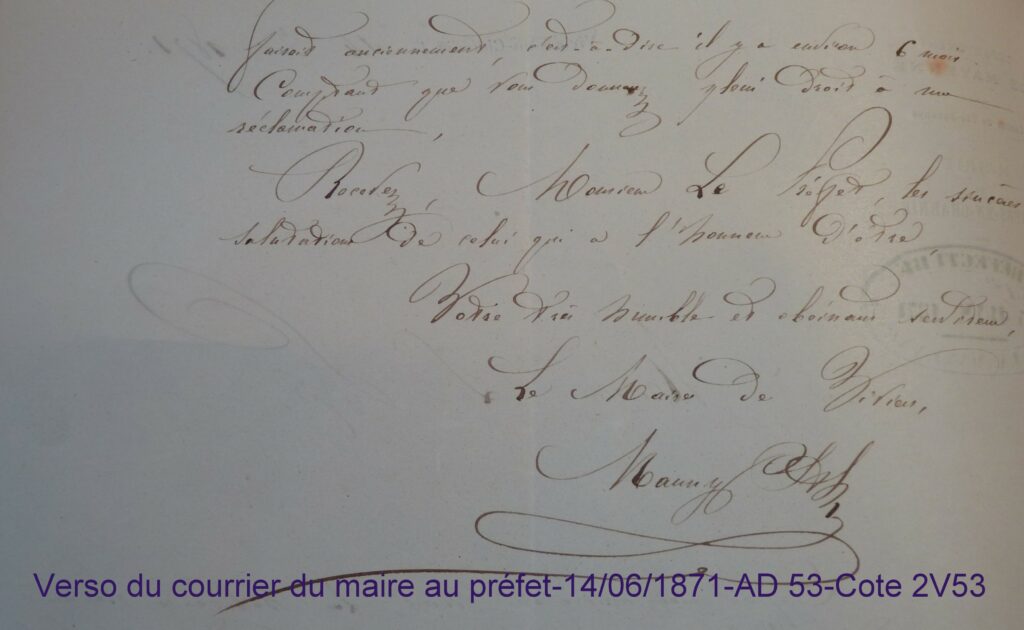 faisait anciennement, c'est-à-dire il y a environ 6 mois.
Comptant que vous donnerez plein droit à ma
réclamation,
Recevez, Monsieur Le Préfet, les sincères
salutations de celui qui a l'honneur d'être
Votre très humble et obéissant serviteur,
Le Maire de
Mauny
Verso du courrier du maire au préfet-14/06/1871-AD 53-Cote 2V53